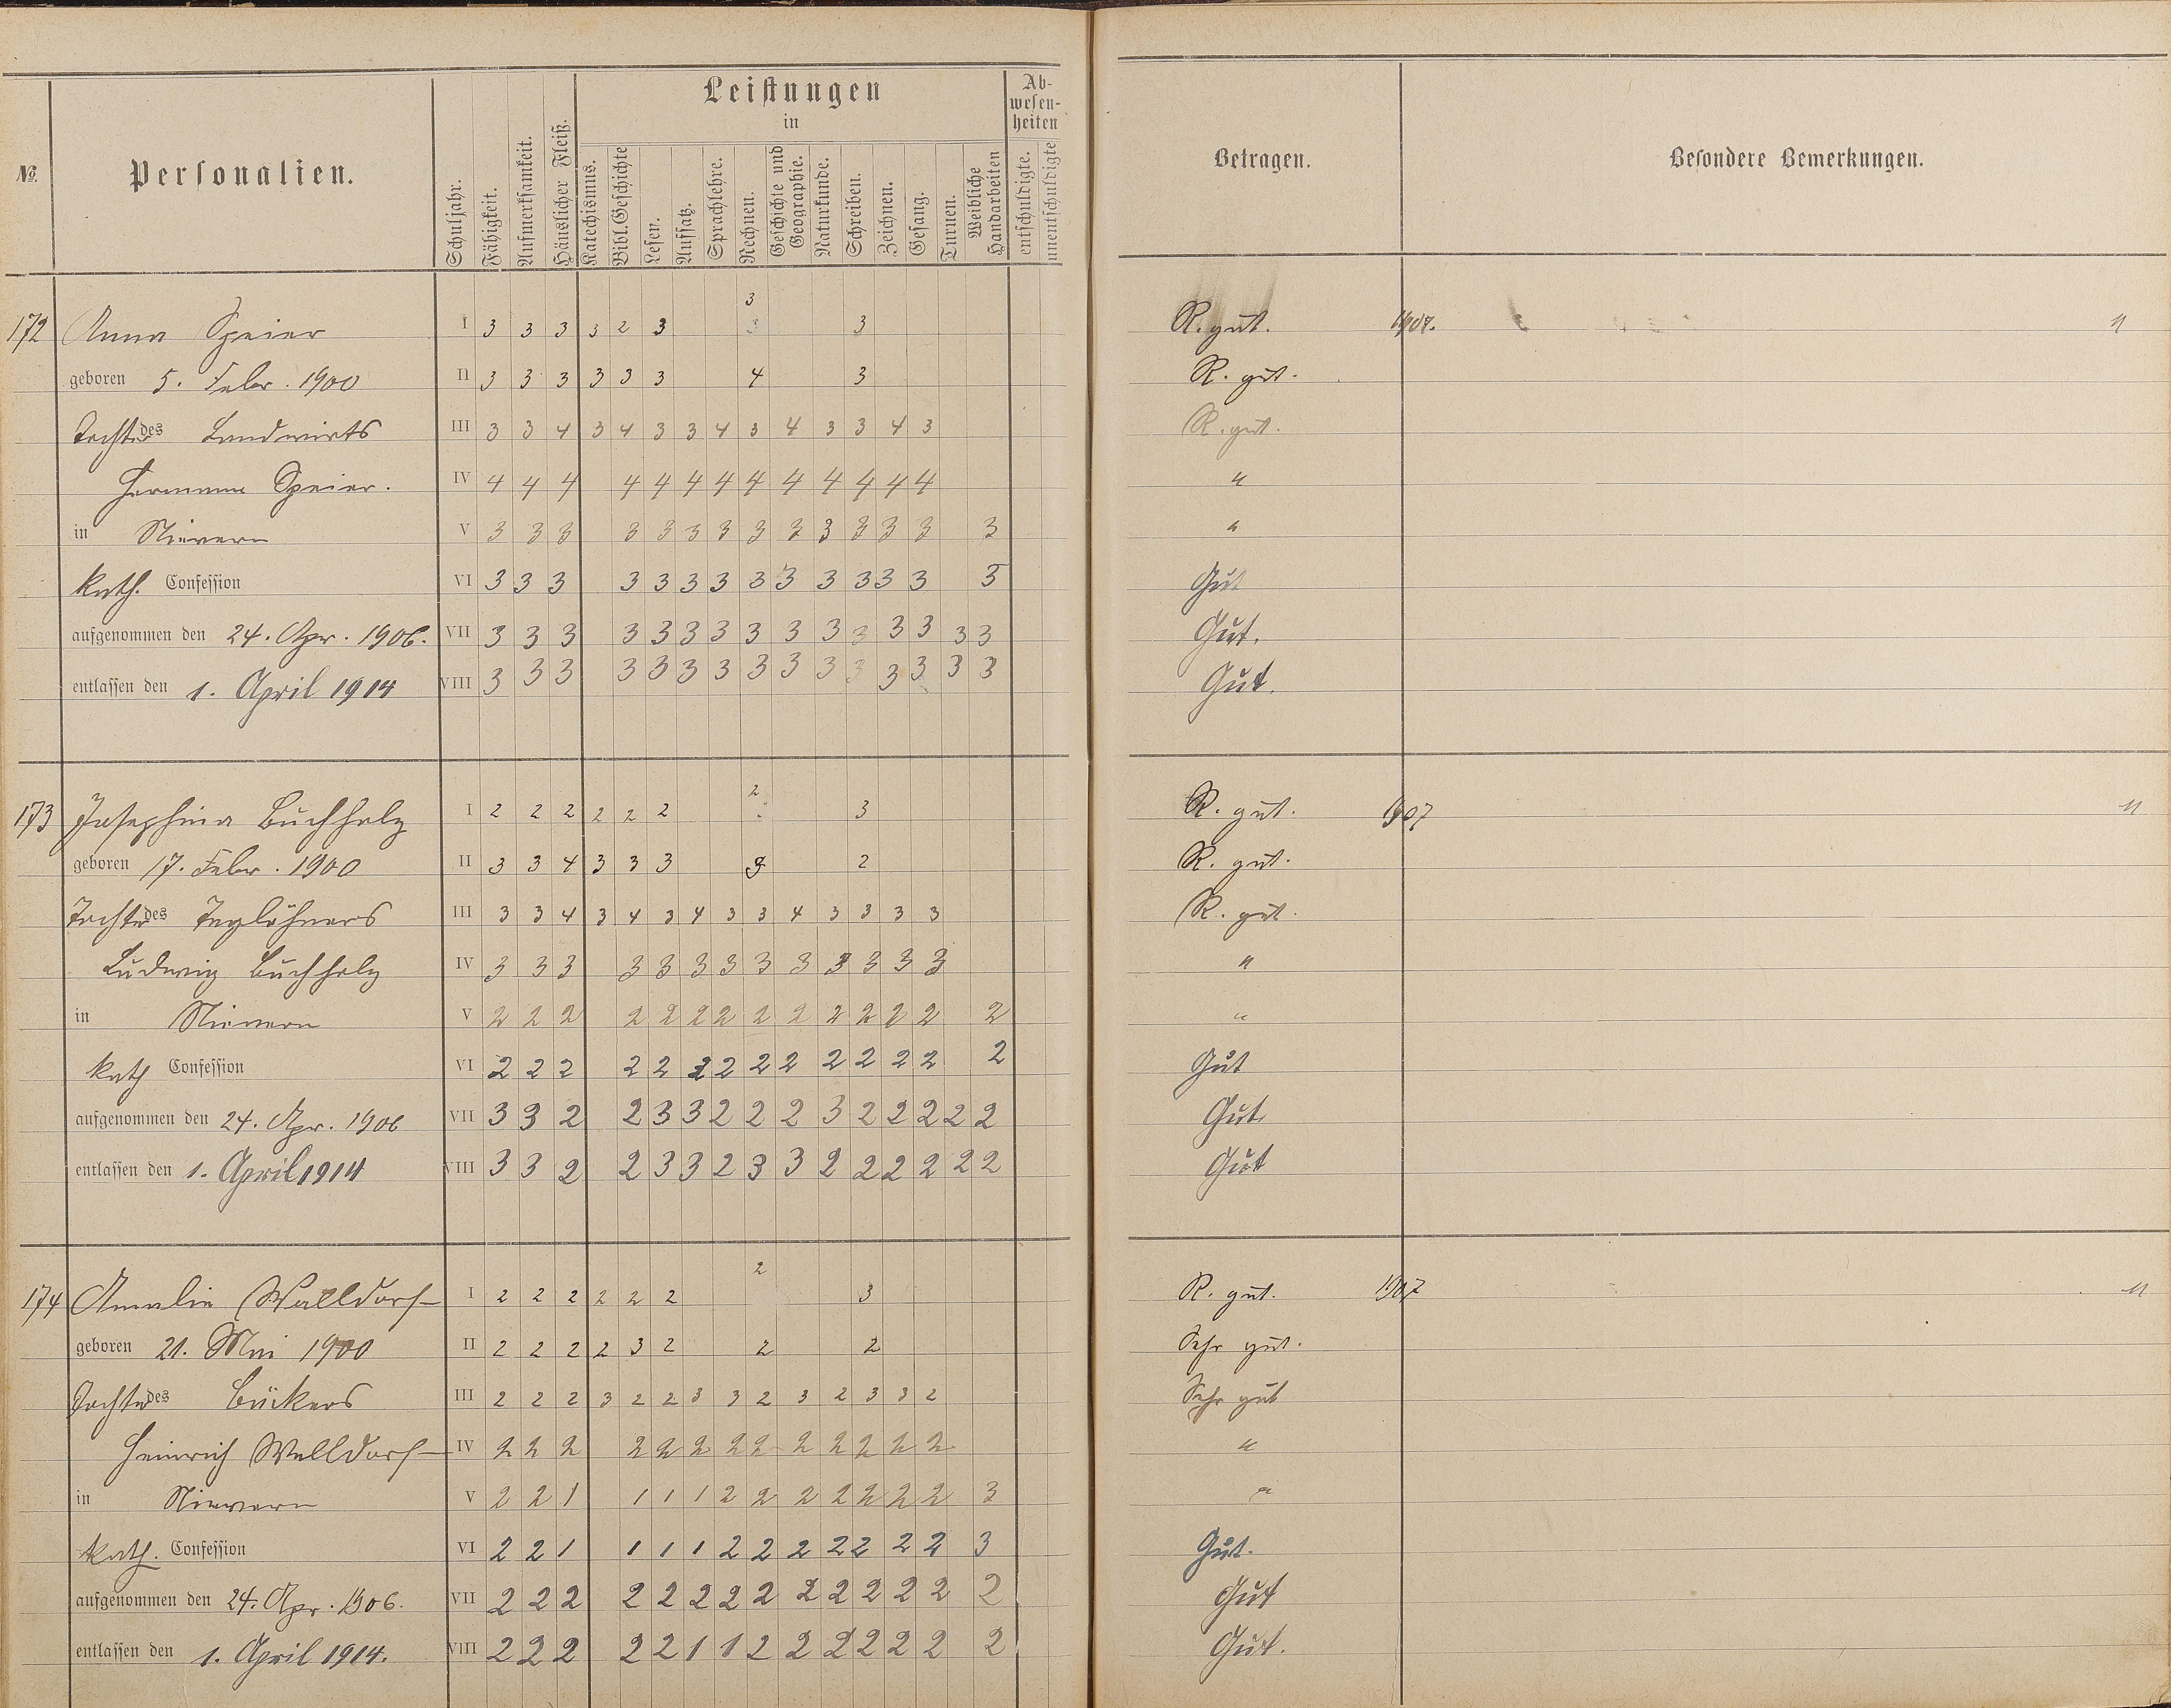 No. Personalien. Schuljahr. Fähigkeit. Aufmerksamkeit. Häuslicher Fleiß. Leistungen in Abwesenheiten Betragen. Besondere Bemerkungen.
Katechismus. Bibl. Geschichte Lesen. Aufsatz. Sprachlehre. Rechnen. Geschichte und Geographie. Naturkunde. Schreiben. Zeichnen. Gesang. Turnen. Weibliche Handarbeiten entschuldigte. unentschuldigte
172 Anna Speier I 3 3 3 3 2 3 3 3 R. gut. 1907. 11
geboren 5. Febr. 1900 II 3 3 3 3 3 3 4 3 R. gut.
Tochter des Landwirts III 3 3 4 3 4 3 3 4 3 4 3 3 4 3 R. gut.
Hermann Speier. IV 4 4 4 4 4 4 4 4 4 4 4 4 4 "
in Nievern V 3 3 3 3 3 3 3 3 3 3 3 3 3 3 "
kath. Confession VI 3 3 3 3 3 3 3 3 3 3 3 3 3 3 Gut
aufgenommen den 24. Apr. 1906. VII 3 3 3 3 3 3 3 3 3 3 3 3 3 3 3 Gut.
entlassen den 1. April 1914 VIII 3 3 3 3 3 3 3 3 3 3 3 3 3 3 3 Gut.
173 Josephina Buchholz I 2 2 2 2 2 2 2 3 R. gut. 1907 11
geboren 17. Febr. 1900 II 3 3 4 3 3 3 3 2 R. gut.
Tochter des Taglöhners III 3 3 4 3 4 3 4 3 3 4 3 3 3 3 R. gut.
Ludwig Buchholz IV 3 3 3 3 3 3 3 3 3 3 3 3 3 "
in Nievern V 2 2 2 2 2 2 2 2 2 2 2 2 2 2 "
kath Confession VI 2 2 2 2 2 2 2 2 2 2 2 2 2 2 Gut
aufgenommen den 24. Apr. 1906 VII 3 3 2 2 3 3 2 2 2 3 2 2 2 2 2 Gut
entlassen den 1. April 1914 VIII 3 3 2 2 3 3 2 3 3 2 2 2 2 2 2 Gut
174 Amalie Walldorf I 2 2 2 2 2 2 2 3 R. gut. 1907 11
geboren 21. Mai 1900 II 2 2 2 2 3 2 2 2 Sehr gut.
Tochter des Bäckers III 2 2 2 3 2 2 3 3 2 3 2 3 3 2 Sehr gut
Heinrich Walldorf IV 2 2 2 2 2 2 2 2 2 2 2 2 2 "
in Nievern V 2 2 1 1 1 1 2 2 2 2 2 2 2 3 "
kath. Confession VI 2 2 1 1 1 1 2 2 2 2 2 2 2 3 Gut.
aufgenommen den 24. Apr. 1906. VII 2 2 2 2 2 2 2 2 2 2 2 2 2 2 Gut
entlassen den 1. April 1914. VIII 2 2 2 2 2 1 1 2 2 2 2 2 2 2 Gut.